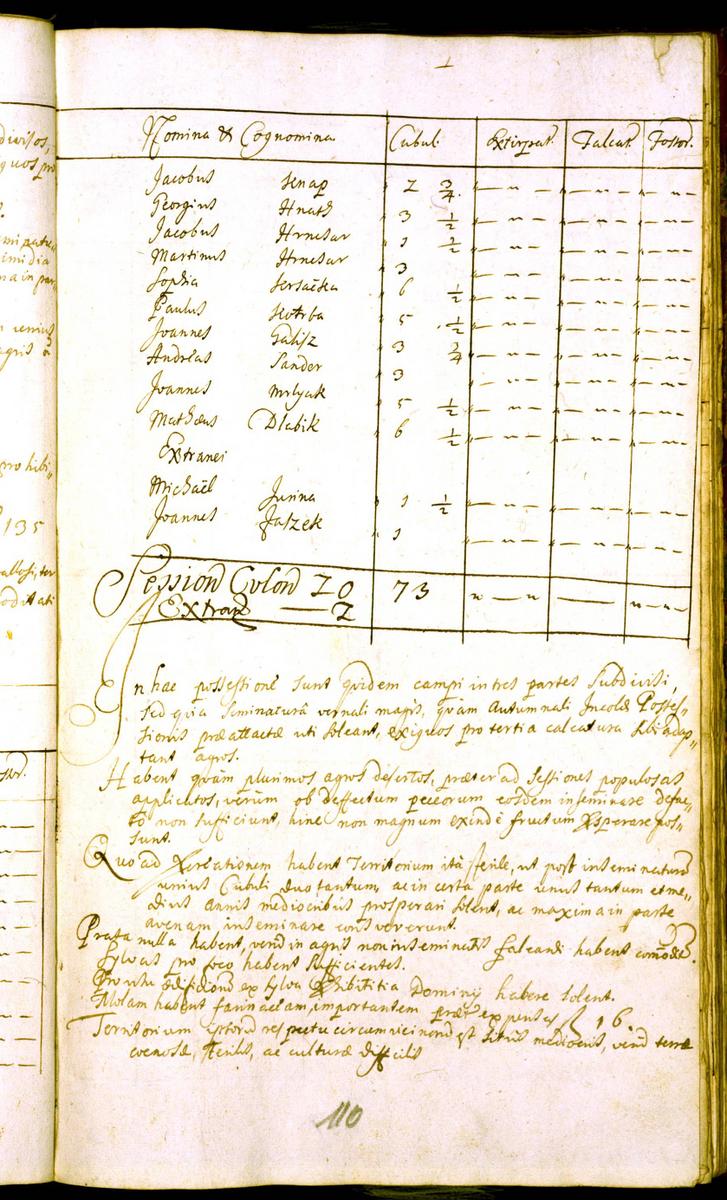 Nomina & Cognomina Cubuli Extirpat. Falcat. Fossor.
Jacobus Senap 2 3/4
Georgius Hnath 3 1/2
Jacobus Hrnesar 1 1/2
Martinus Hrnesar 3
Sophia 6 1/2
Paulus Skotrba 5 1/2
Joannes Galisz 3 3/4
Andreas Sander 3
Joannes Mrlyak 5 1/2
Mathæus Dlabik 6 1/2
Extranei
Michaël Jurina 1 1/2
Joannes Jaszek 1
Session Colon 20 73
Extran — 2
In hac possessione sunt quidem campi in tres partes subdivisi,
sed quia seminatura vernali magis, quam Autumnali Incolæ Posses„
sionis præattactæ uti soleant, exiguos pro tertia calcatura sibi adap„
tant agros.
Habent quam plurimos agros desertos, præter ad Sessiones populosas
applicatos, verum ob deffectum pecorum eosdem inseminare defac„
to non sufficiunt, hinc non magnum exinde fructum sperare pos„
sunt.
Quo ad habent Territorium ita sterile, ut post inseminaturam
unius Cubuli duo tantum, ac in certa parte unus tantum et me„
dius annis mediocribus prosperari solent, ac maxima in parte
avenam inseminare consveverunt.
Prata nulla habent, verum in agris non inseminatis falcandi habent comodit.
Sylvas pro foco habent sufficientes.
Pro usu ex sylva Dominij habere solent.
Molam habent farinaciam, importantem præter expensas f 16.
Territorium istorum respectu circumvicinorum est situs mediocris, verum terræ
coenosæ, sterilis, ac culturæ difficilis
110